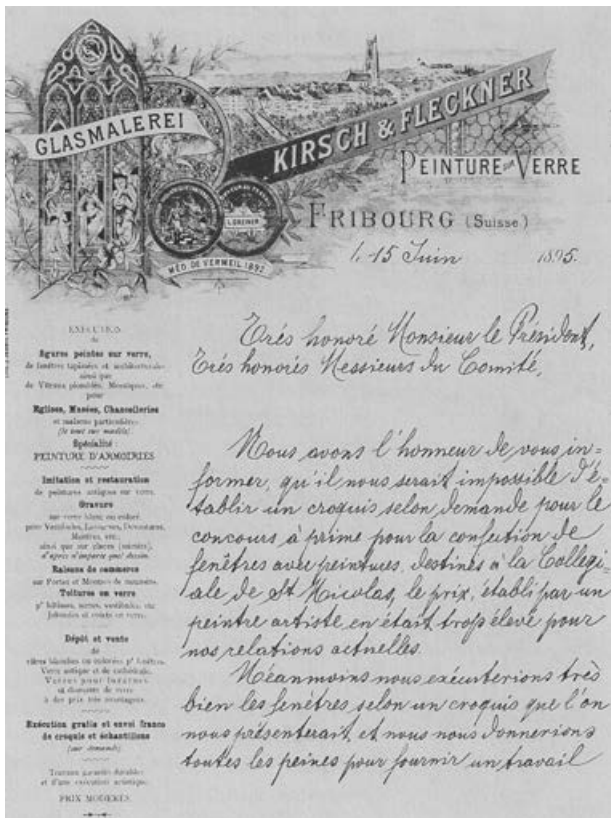 GLASMALEREI
KIRSCH & FLECKNER
PEINTURE SUR VERRE
L. GREINER
MÉD. DE VERMEIL 1892
FRIBOURG (Suisse)
l. 15 Juin 1895.
EXÉCUTION
de
figures peintes sur verre,
de fenêtres tapissées et architecturales
ainsi que
de Vitraux plombés, Mosaïques, etc
pour
Eglises, Musées, Chancelleries
et maisons particulières
(le tout sur modèle).
Spécialité:
PEINTURE D'ARMOIRIES
Imitation et restauration
de peintures antiques sur verre.
Gravure
sur verre blanc ou coloré
pour Vestibules, Devantures,
ainsi que sur glaces
d'après n'importe quel dessin.
Raisons de commerce
sur Portes et Montres de magasins.
Toitures en verre
Dépôt et vente
de
vitres blanches ou colorées pr fenêtres.
Verre antique et de cathédrale.
Verres pour
et diamants de verre
à des prix très avantageux.
Exécution gratis et envoi franco
de croquis et échantillons
(sur demande).
Travaux garantis durables
et d'une exécution artistique.
PRIX MODÉRÉS.
Trés honoré Monsieur le Président,
Trés honorés Messieurs du Comité,
Nous avons l'honneur de vous in=
former, qu'il nous serait impossible d'é=
tablir un croquis selon demande pour le
concours à prime pour la confection de
fenêtres avec peintures, destinés à la Collegi=
ale de St Nicolas, le prix, établi par un
peintre artiste en était trop élevé pour
nos relations actuelles.
Néanmoins nous exécuterions très
bien les fenêtres selon un croquis que l'on
nous présenterait, et nous nous donnerions
toutes les peines pour fournir un travail